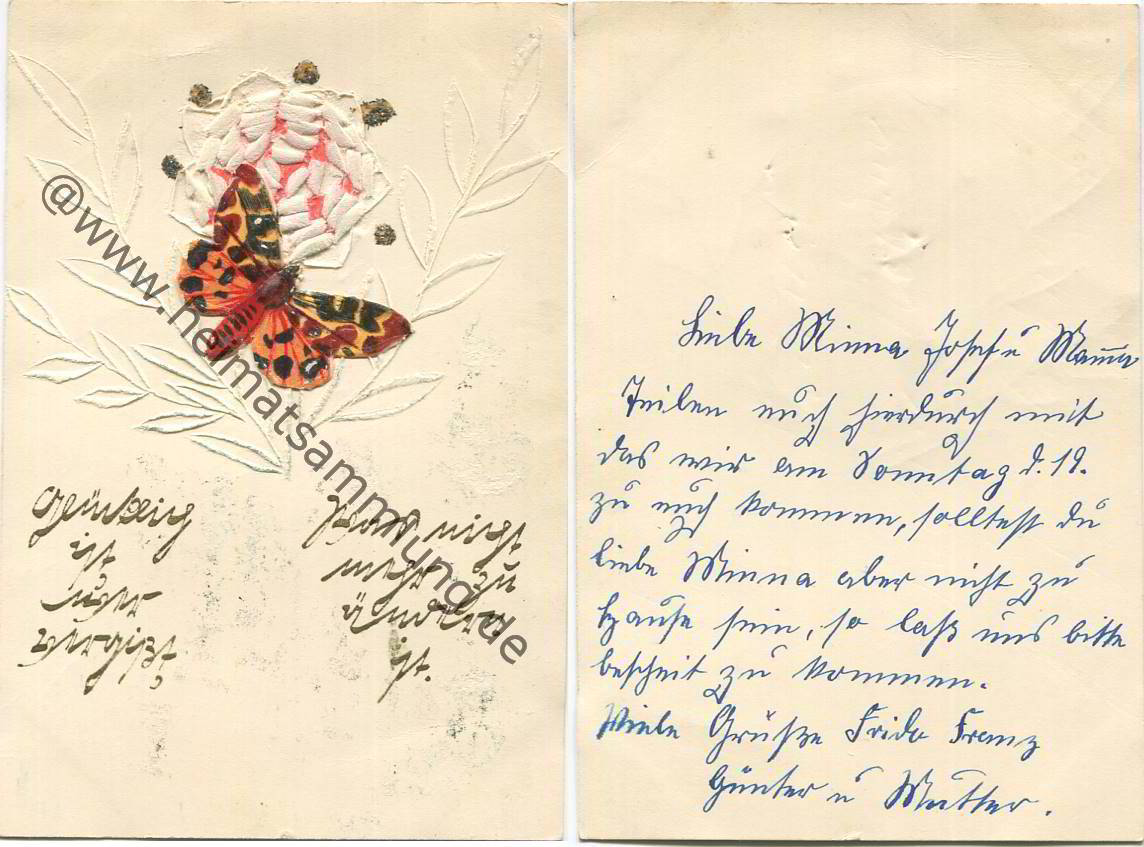 Glücklich
ist
wer
vergißt,
was nicht
mehr zu
ändern
ist.
Liebe Minna Josef u Mama
Teilen euch hierdurch mit
das wir am Sonntag d. 19.
zu euch kommen, solltest du
liebe Minna aber nicht zu
Hause sein, so laß uns bitte
bescheit zu kommen.
Viele Grüße Frida Franz
Günter u Mutter.
@www.heimatsammlung.de